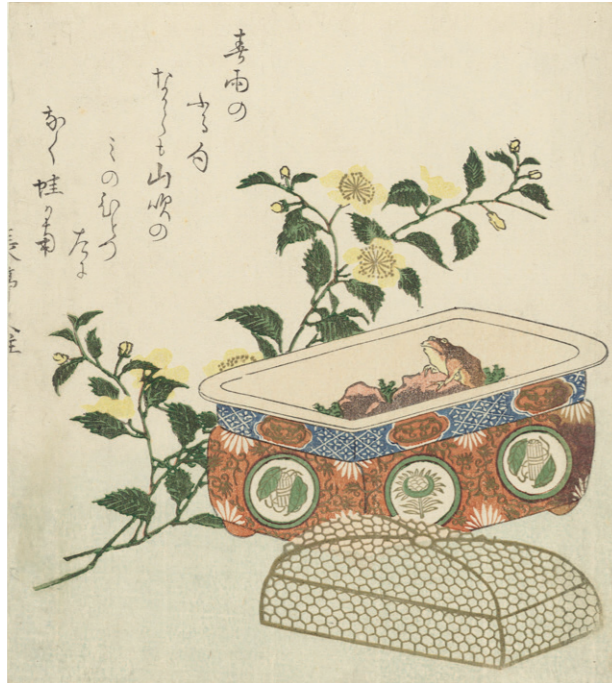 春雨の
ふる句
なからも山吹の
ミのひとつ
たに
なく蛙可南